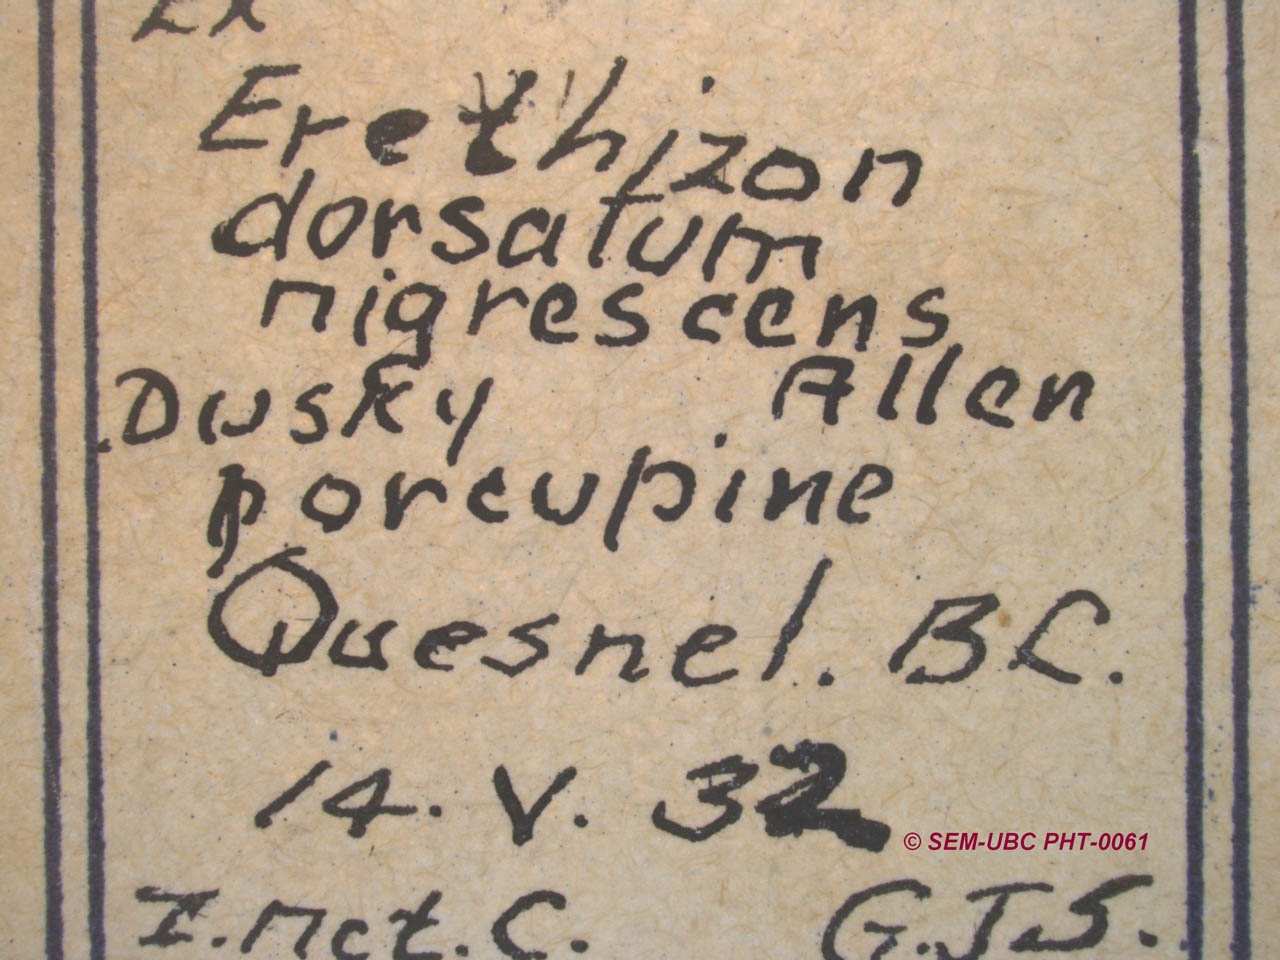 Ex
Erethizon
dorsatum
nigrescens
Dusky Allen
porcupine
Quesnel. B.C.
14. V. 32
© SEM-UBC PHT-0061
I. McT. C. G.J.S.